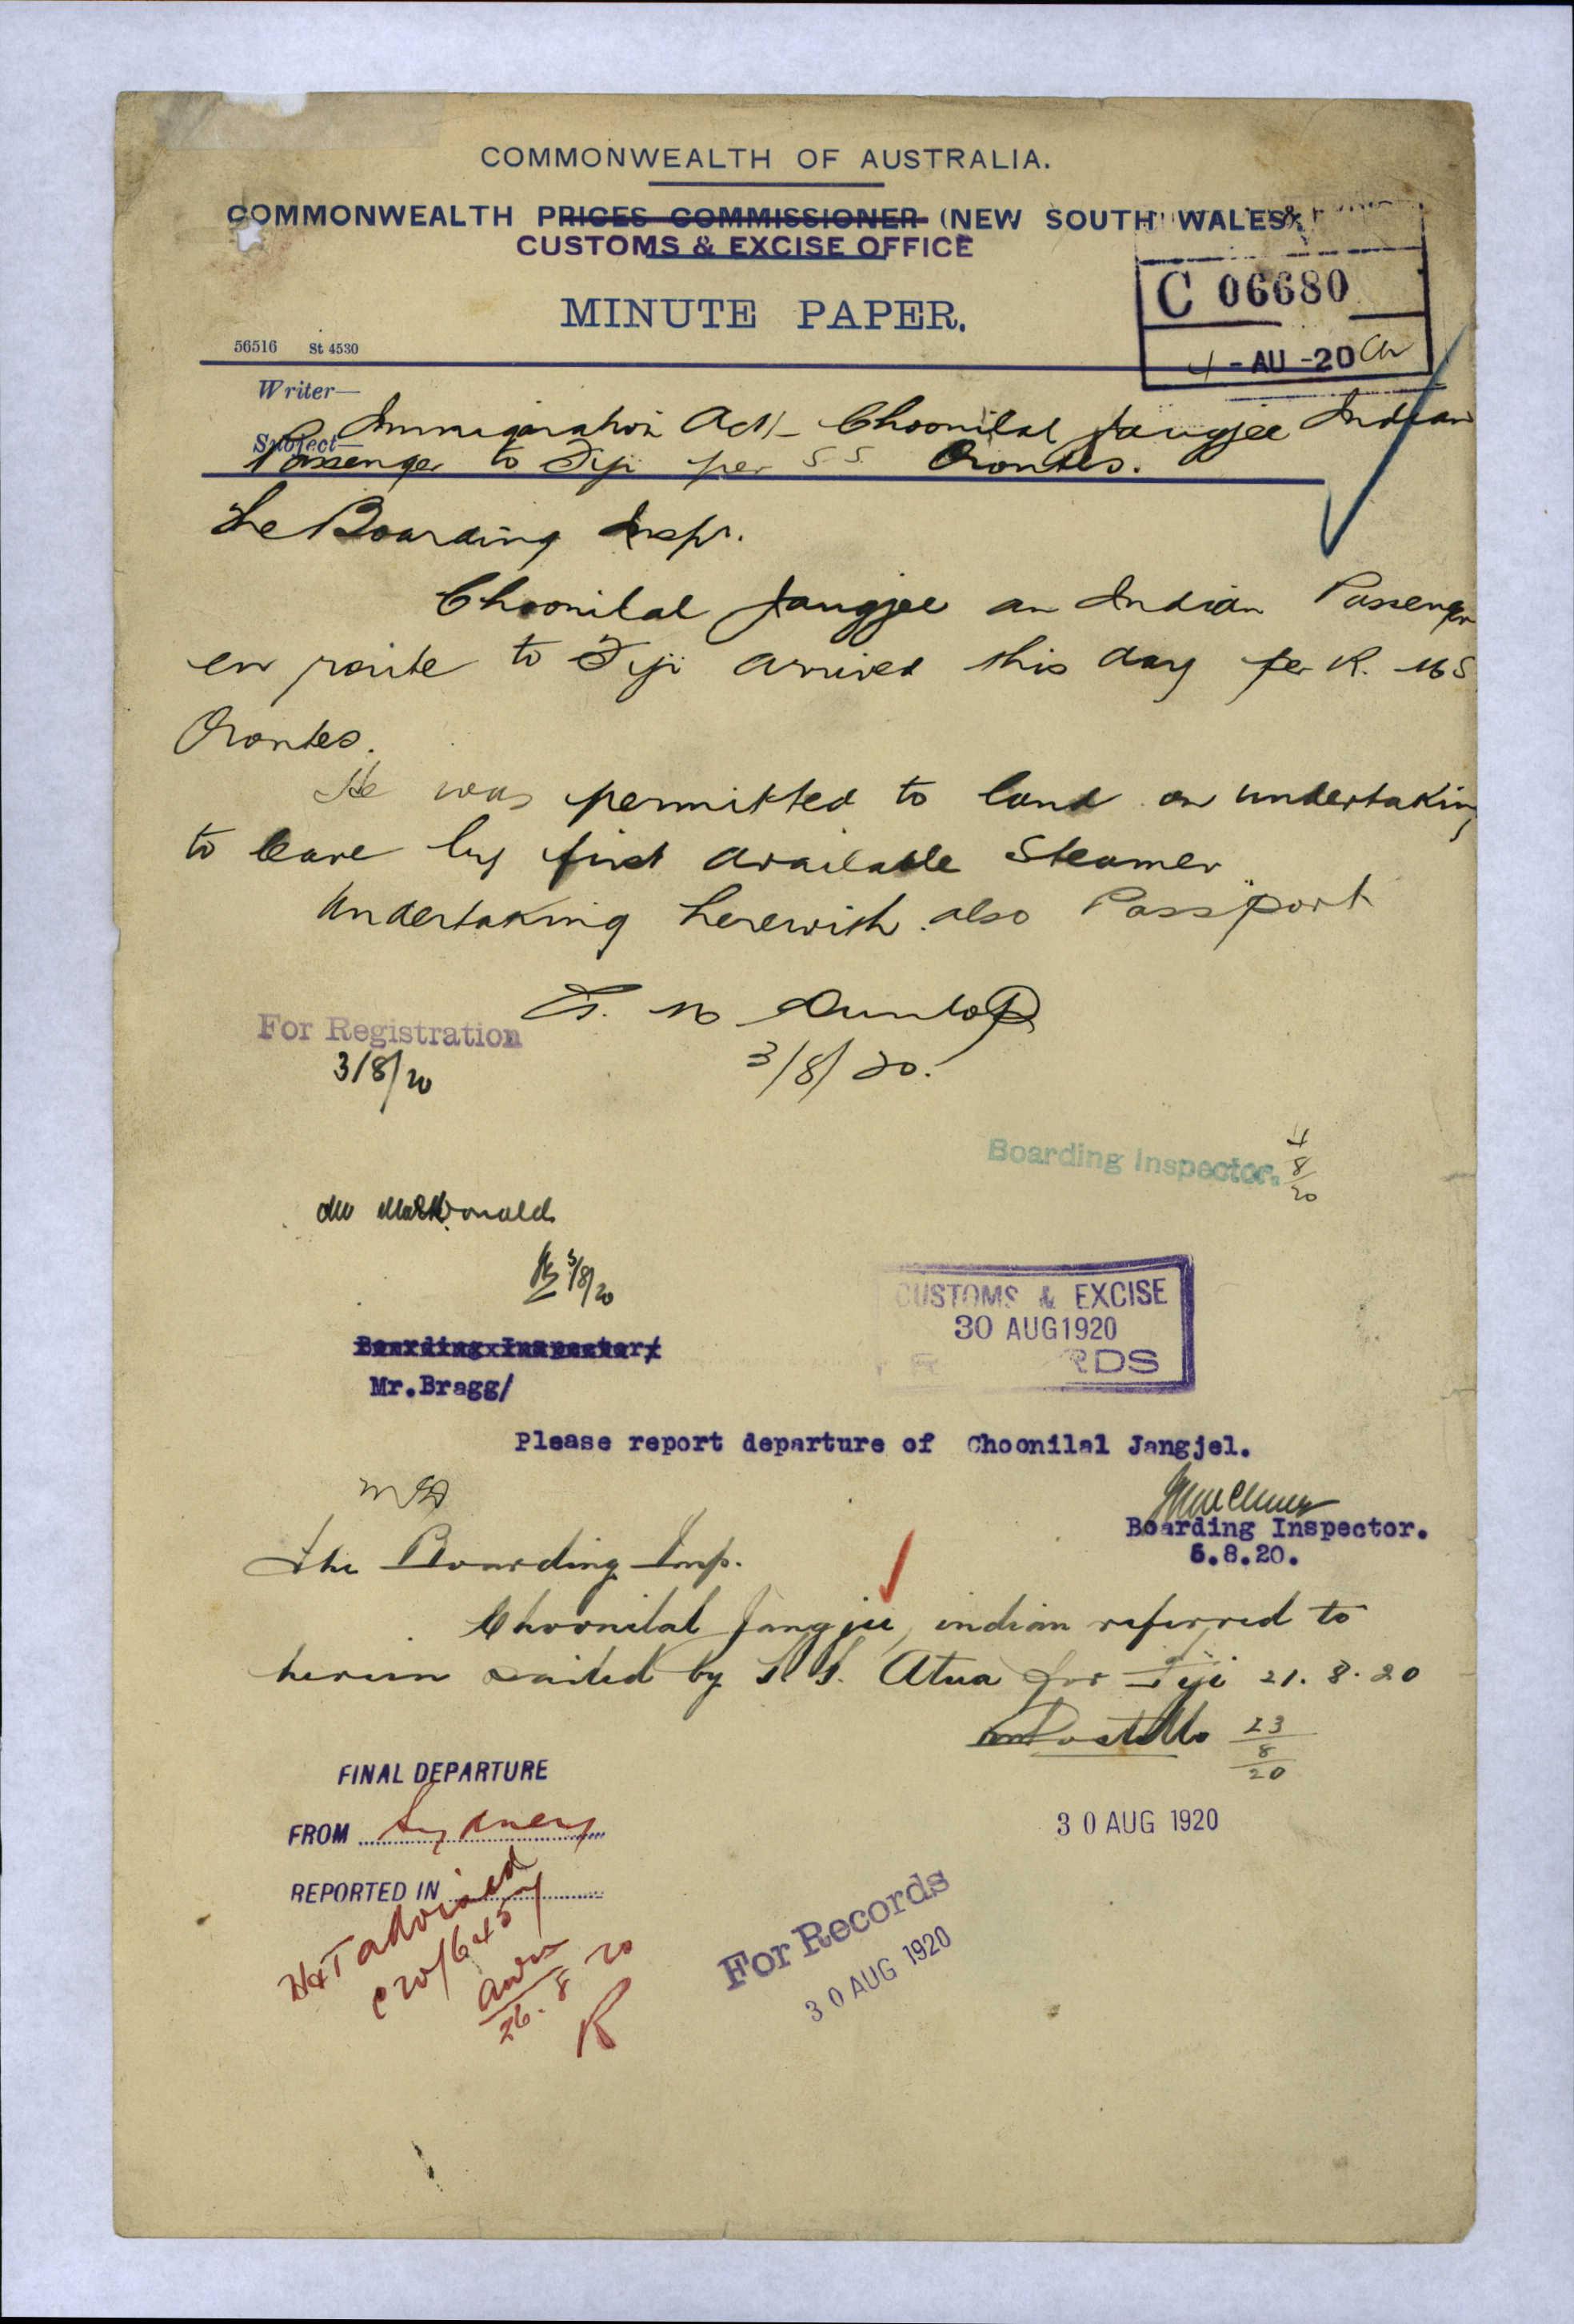 COMMONWEALTH OF AUSTRALIA.
COMMONWEALTH PRICES COMMISSIONER (NEW SOUTH WALES)
CUSTOMS & EXCISE OFFICE
MINUTE PAPER.
C 06680
4 - AU -20
56516 St 4530
Writer—
Subject—
Immigration Act - Choonilal Jangjee Indian
Passenger to Fiji per S S. Orontes.
The Boarding Inspr.
Choonilal Jangjee an Indian Passenger
en route to Fiji arrived this day per R. M S
Orontes.
He was permitted to land on undertaking
to leave by first available Steamer
Undertaking herewith also Passport
Dunlop
3/8/20.
For Registration
3/8/20
Boarding Inspector.
4/8/20
Mr MacDonald
3/8/20
CUSTOMS & EXCISE
30 AUG 1920
RDS
Boarding Inspector/
Mr.Bragg/
Please report departure of Choonilal Jangjel.
Boarding Inspector.
6.8.20.
The Boarding Insp.
Choonilal Jangjee, indian referred to
herein sailed by S. S. Atua for Fiji 21.8.20
23/8/20
FINAL DEPARTURE
FROM Sydney
REPORTED IN
30 AUG 1920
H&T advised
C20/6457
26.8.20
For Records
30 AUG 1920